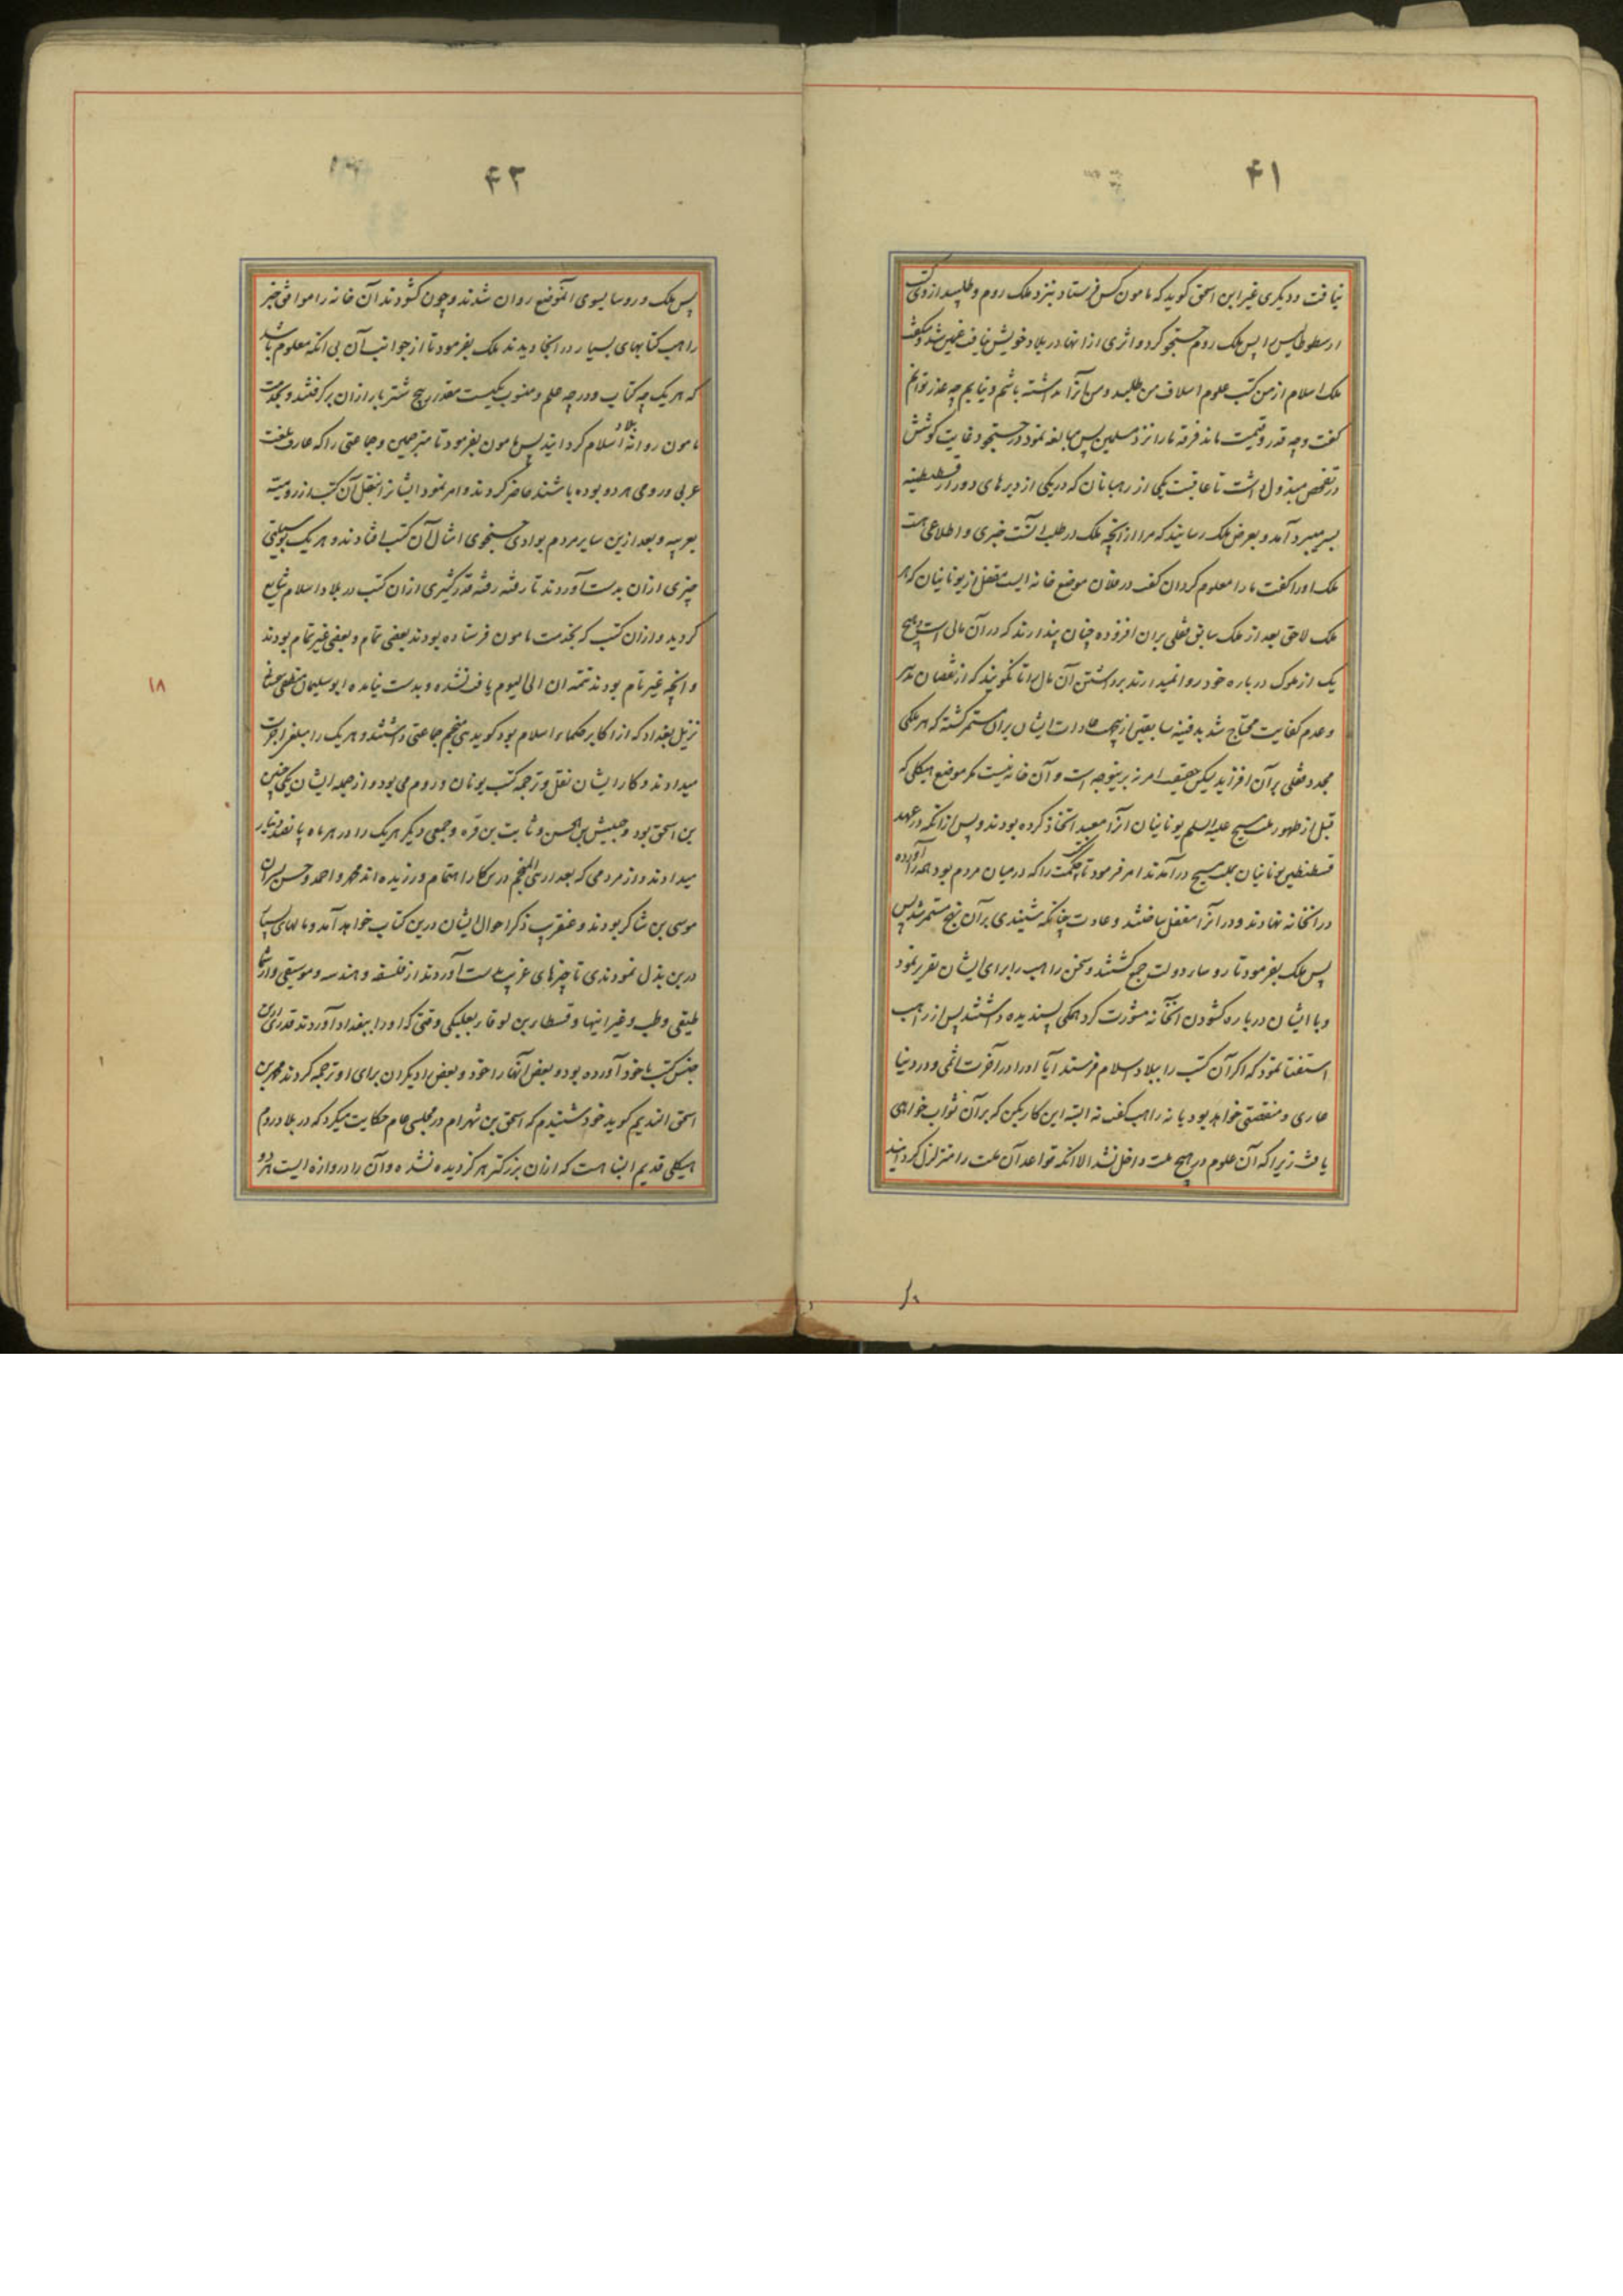 ۴۱
نیافت و دیکری غیر ابن اسحق کوید که مامون کس فرستاد بنزد ملک روم و طلبید از وی کتب
ارسطوطالیس را پس ملک روم جستجو کرد و اثری از انها در بلاد خویش نیافت غمین شد و گفت
ملک اسلام از من کتب علوم اسلاف من طلبید و من انرا نداشته باشم و نیابم چه عذر توانم
کفت و چه قدر و قیمت ماند فرقه ما را نزد مسلمین پس مبالغه نمود در جستجو و غایت کوشش
در تفحص مبذول داشت تا عاقبت یکی از رهبانان که در یکی از دیرهای دور از قسطنطینیه
بسر میبرد آمد و بعرض ملک رسانید که مرا از آنچه ملک در طلب آنست خبری و اطلاعی هست
ملک او را کفت ما را معلوم کردان کفت در فلان موضع خانه ایست مقفل از یونانیان که هر
ملک لاحق بعد از ملک سابق قفلی بران افزوده چنان پندارند که در آن مالی است و هیچ
یک از ملوک در باره خود روا نمیدارند برداشتن آن مال را تا نکویند که از نقصان تدبیر
و عدم کفایت محتاج شد بدفینه سابقین ازینجهت عادت ایشان بران مستمر کشته که هر ملکی
مجدد قفلی بر آن افزاید لیکن حقیقت امر نه برینوجه است و آن خانه نیست مکر موضع هیکلی که
قبل از ظهور ملت مسیح علیه السلم یونانیان انرا معبد اتخاذ کرده بودند و پس از انکه در عهد
قسطنطین یونانیان بملت مسیح درآمدند امر فرمود تا کتب حکمت را که در میان مردم بود همه را آورده
در انخانه نهادند و در انرا مقفل ساختند و عادت چنانکه شنیدی بر آن نهج مستمر شد پس
پس ملک بفرمود تا روساء دولت جمع کشتند و سخن راهب را برای ایشان تقریر نمود
و با ایشان درباره کشودن انخانه مشورت کرد همکی پسندیده داشتند پس از راهب
استفتا نمود که اکر آن کتب را ببلاد اسلام فرستد آیا او را در آخرت اثمی و در دنیا
عاری و منقصتی خواهد بود یا نه راهب کفت نه البته این کار بکن که بر آن ثواب خواهی
یافت زیرا که آن علوم در هیچ ملت داخل نشد الا انکه قواعد آن ملت را متزلزل کردانید
۴۲
پس ملک و روسا بسوی انموضع روان شدند و چون کشودند آن خانه را موافق خبر
راهب کتابهای بسیار در انجا دیدند ملک بفرمود تا از جوانب آن بی انکه معلوم باشد
که هر یک چه کتاب و در چه علم و منسوب بکیست مقدار پنج شتر بار ازان برکرفتند و بخدمت
مامون روانه بلاد اسلام کردانیدند پس مامون بفرمود تا مترجمین و جماعتی را که عارف بلغت
عربی و رومی هر دو بوده باشند حاضر کردند و امر نمود ایشانرا بنقل آن کتب از رومیه
بعربیه و بعد ازین سایر مردم بوادی جستجوی امثال آن کتب افتادند و هر یک بوسیلتی
چیزی ازان بدست آوردند تا رفته رفته قدر کثیری ازان کتب در بلاد اسلام شایع
کردید و ازان کتب که بخدمت مامون فرستاده بودند بعضی تمام و بعضی غیر تمام بودند
و انچه غیر تام بودند تتمه ان الی الیوم یافت نشده و بدست نیامده ابو سلیمان منطقی سجستانی
نزیل بغداد که از اکابر حکماء اسلام بود کوید بنی منجم جماعتی داشتند و هر یک را مبلغی اجرت
میدادند و کار ایشان نقل و ترجمه کتب یونان و روم می بود و از جمله ایشان یکی حنین
بن اسحق بود و حبیش بن الحسن و ثابت بن قره و جمعی دیکر هر یک را در هر ماه پانصد دینار
میدادند و از مردمی که بعد از بنی المنجم درین کار اهتمام ورزیده اند محمد و احمد و حسن پسران
موسی بن شاکر بودند و عنقریب ذکر احوال ایشان درین کتاب خواهد آمد و مالهای بسیار
درین بذل نمودندی تا چیزهای غریب بدست آوردند از فلسفه و هندسه و موسیقی و ارثما
طیقی و طب و غیر اینها و قسطا بن لوقا بعلبکی وقتی که او را ببغداد آوردند قدری ازین
جنس کتب با خود آورده بود و بعض آنها را خود و بعض را دیکران برای او ترجمه کردند محمد بن
اسحق الندیم کوید خود شنیدم که اسحق بن شهرام در مجلسی عام حکایت میکرد که در بلاد روم
هیکلی قدیم البنا هست که ازان بزرکتر هرکز دیده نشده و آن را دروازه ایست هر دو
۱۸